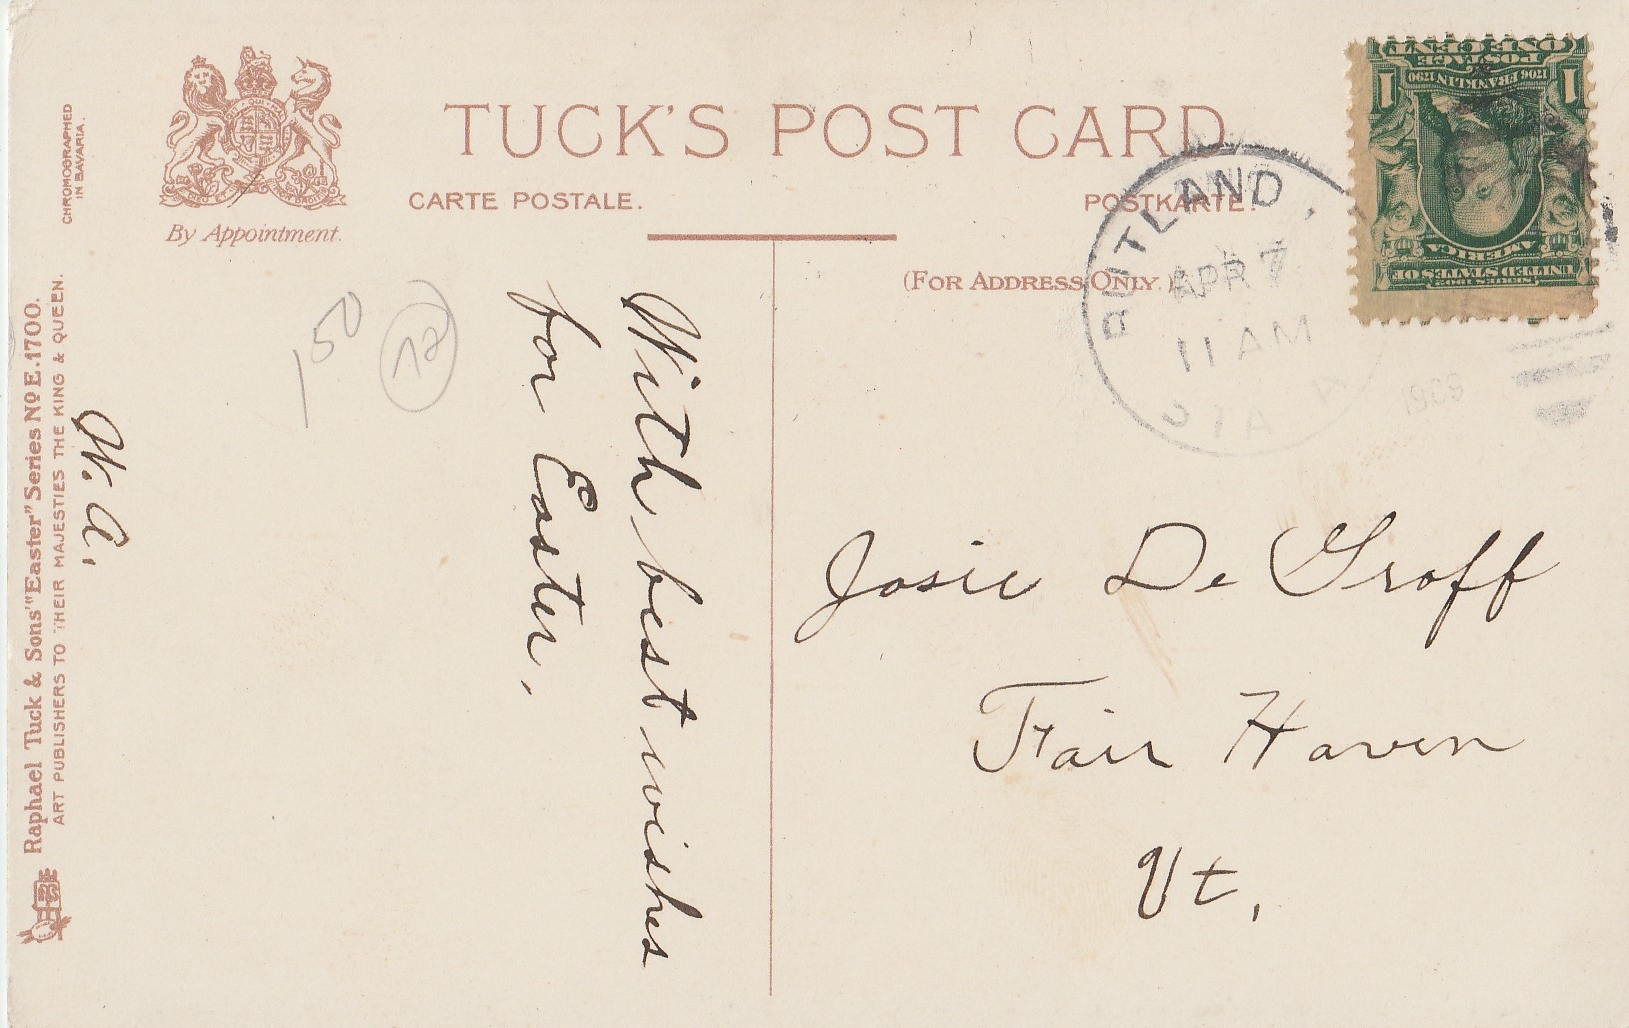 TUCK'S POST CARD
CARTE POSTALE.
POSTKARTE.
By Appointment.
(FOR ADDRESS ONLY.)
CHROMOGRAPHED
IN BAVARIA.
Raphael Tuck & Sons' "Easter" Series No E.1700.
ART PUBLISHERS TO THEIR MAJESTIES THE KING & QUEEN.
RUTLAND,
APR 7
11 AM
ONE CENT
POSTAGE
1706 FRANKLIN 1790
1 1
AMERICA
UNITED STATES OF
SERIES 1902
150
With best wishes
for Easter.
W. A.
Josie De Groff
Fair Haven
Vt.